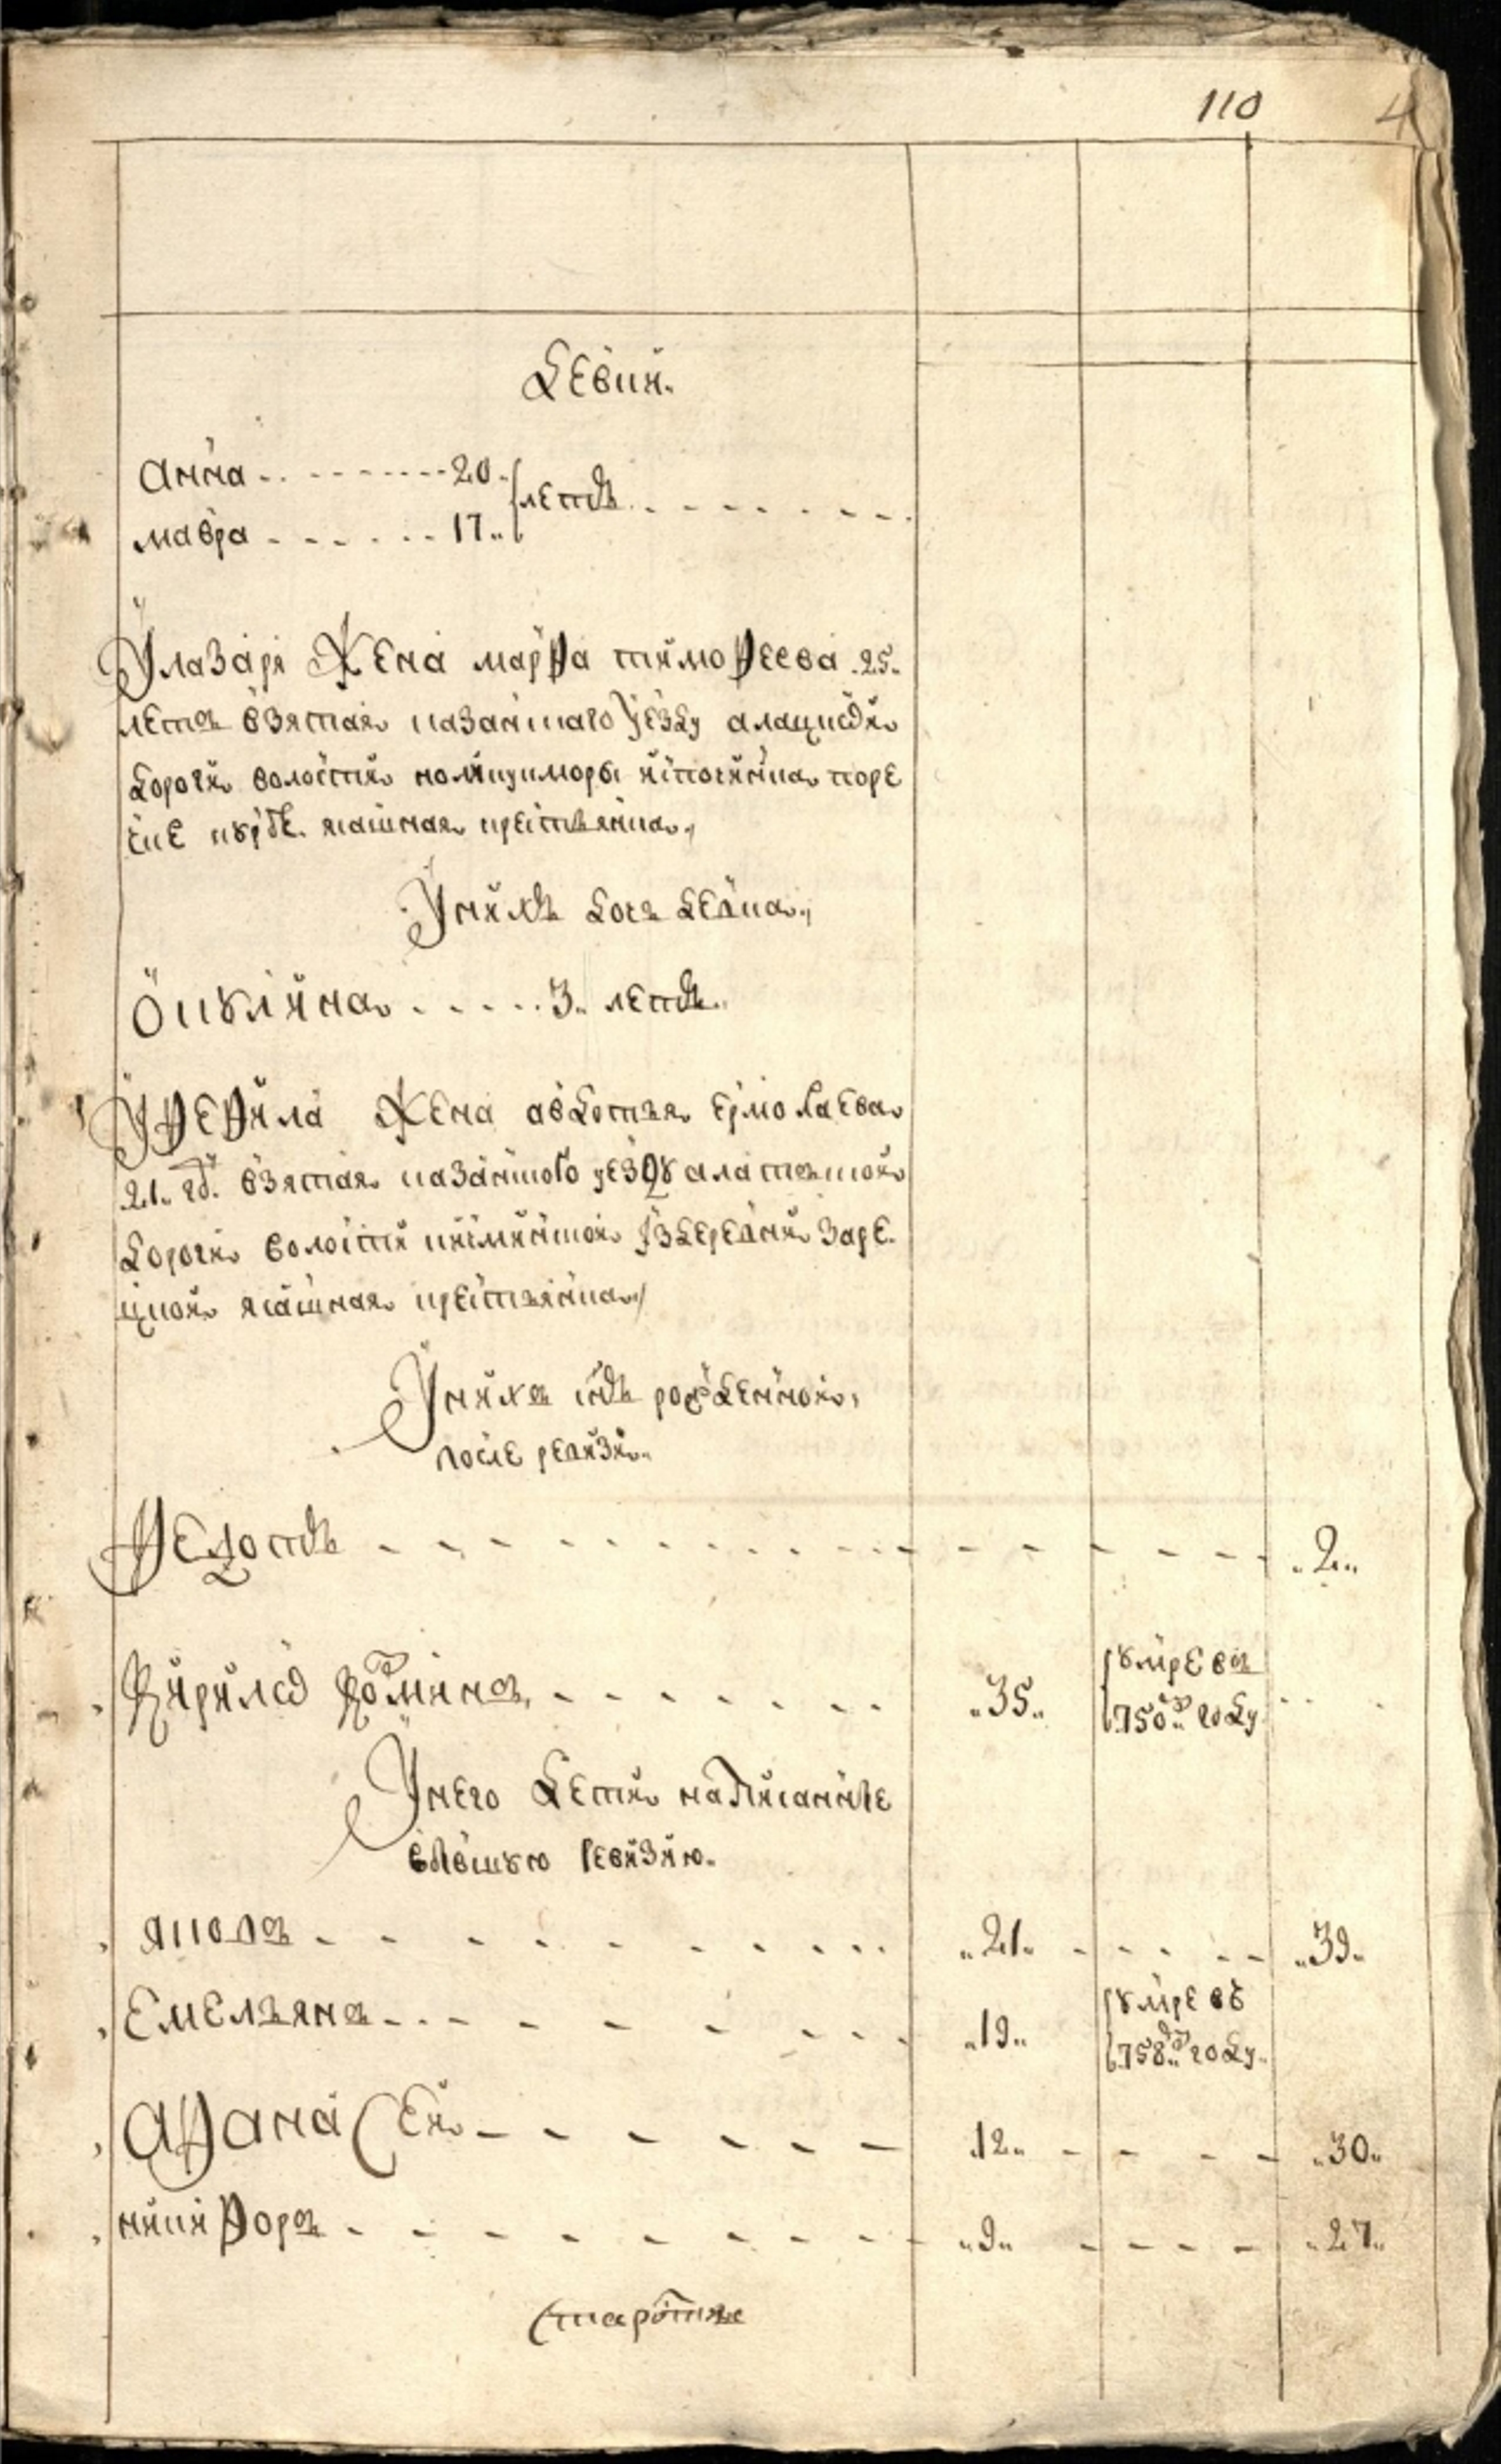 110 4
девки.
Анна - - - 20.
мавра - - - 17..
летъ
У лазаря Жена марфа тимофеева .25.
летъ взятая казанъскаго уезду алацкой
дороги волости
ясашная крестьянка.,
У нихъ дочь девка.,
Окулина . . . . . 3. летъ..
У фефила Жена авдотья ермолаева
21. гд. взятая казанского уезду алатской
дороги волости заре
цкой ясашная крестьянка./
У нихъ сынъ рожденной,
после ревизи..
Федотъ - - - .2..
Кирило Козминъ, - - - .35.. умре въ
750.. году
У него дети написанные
в прешнюю ревизию.
яковъ - - - .21. - - - .39.
Емельянъ - - - .19.. умре въ
758.. году.
Афанасей - - - 12.. - - - .30..
никифоръ - - - .9.. - - - .27..